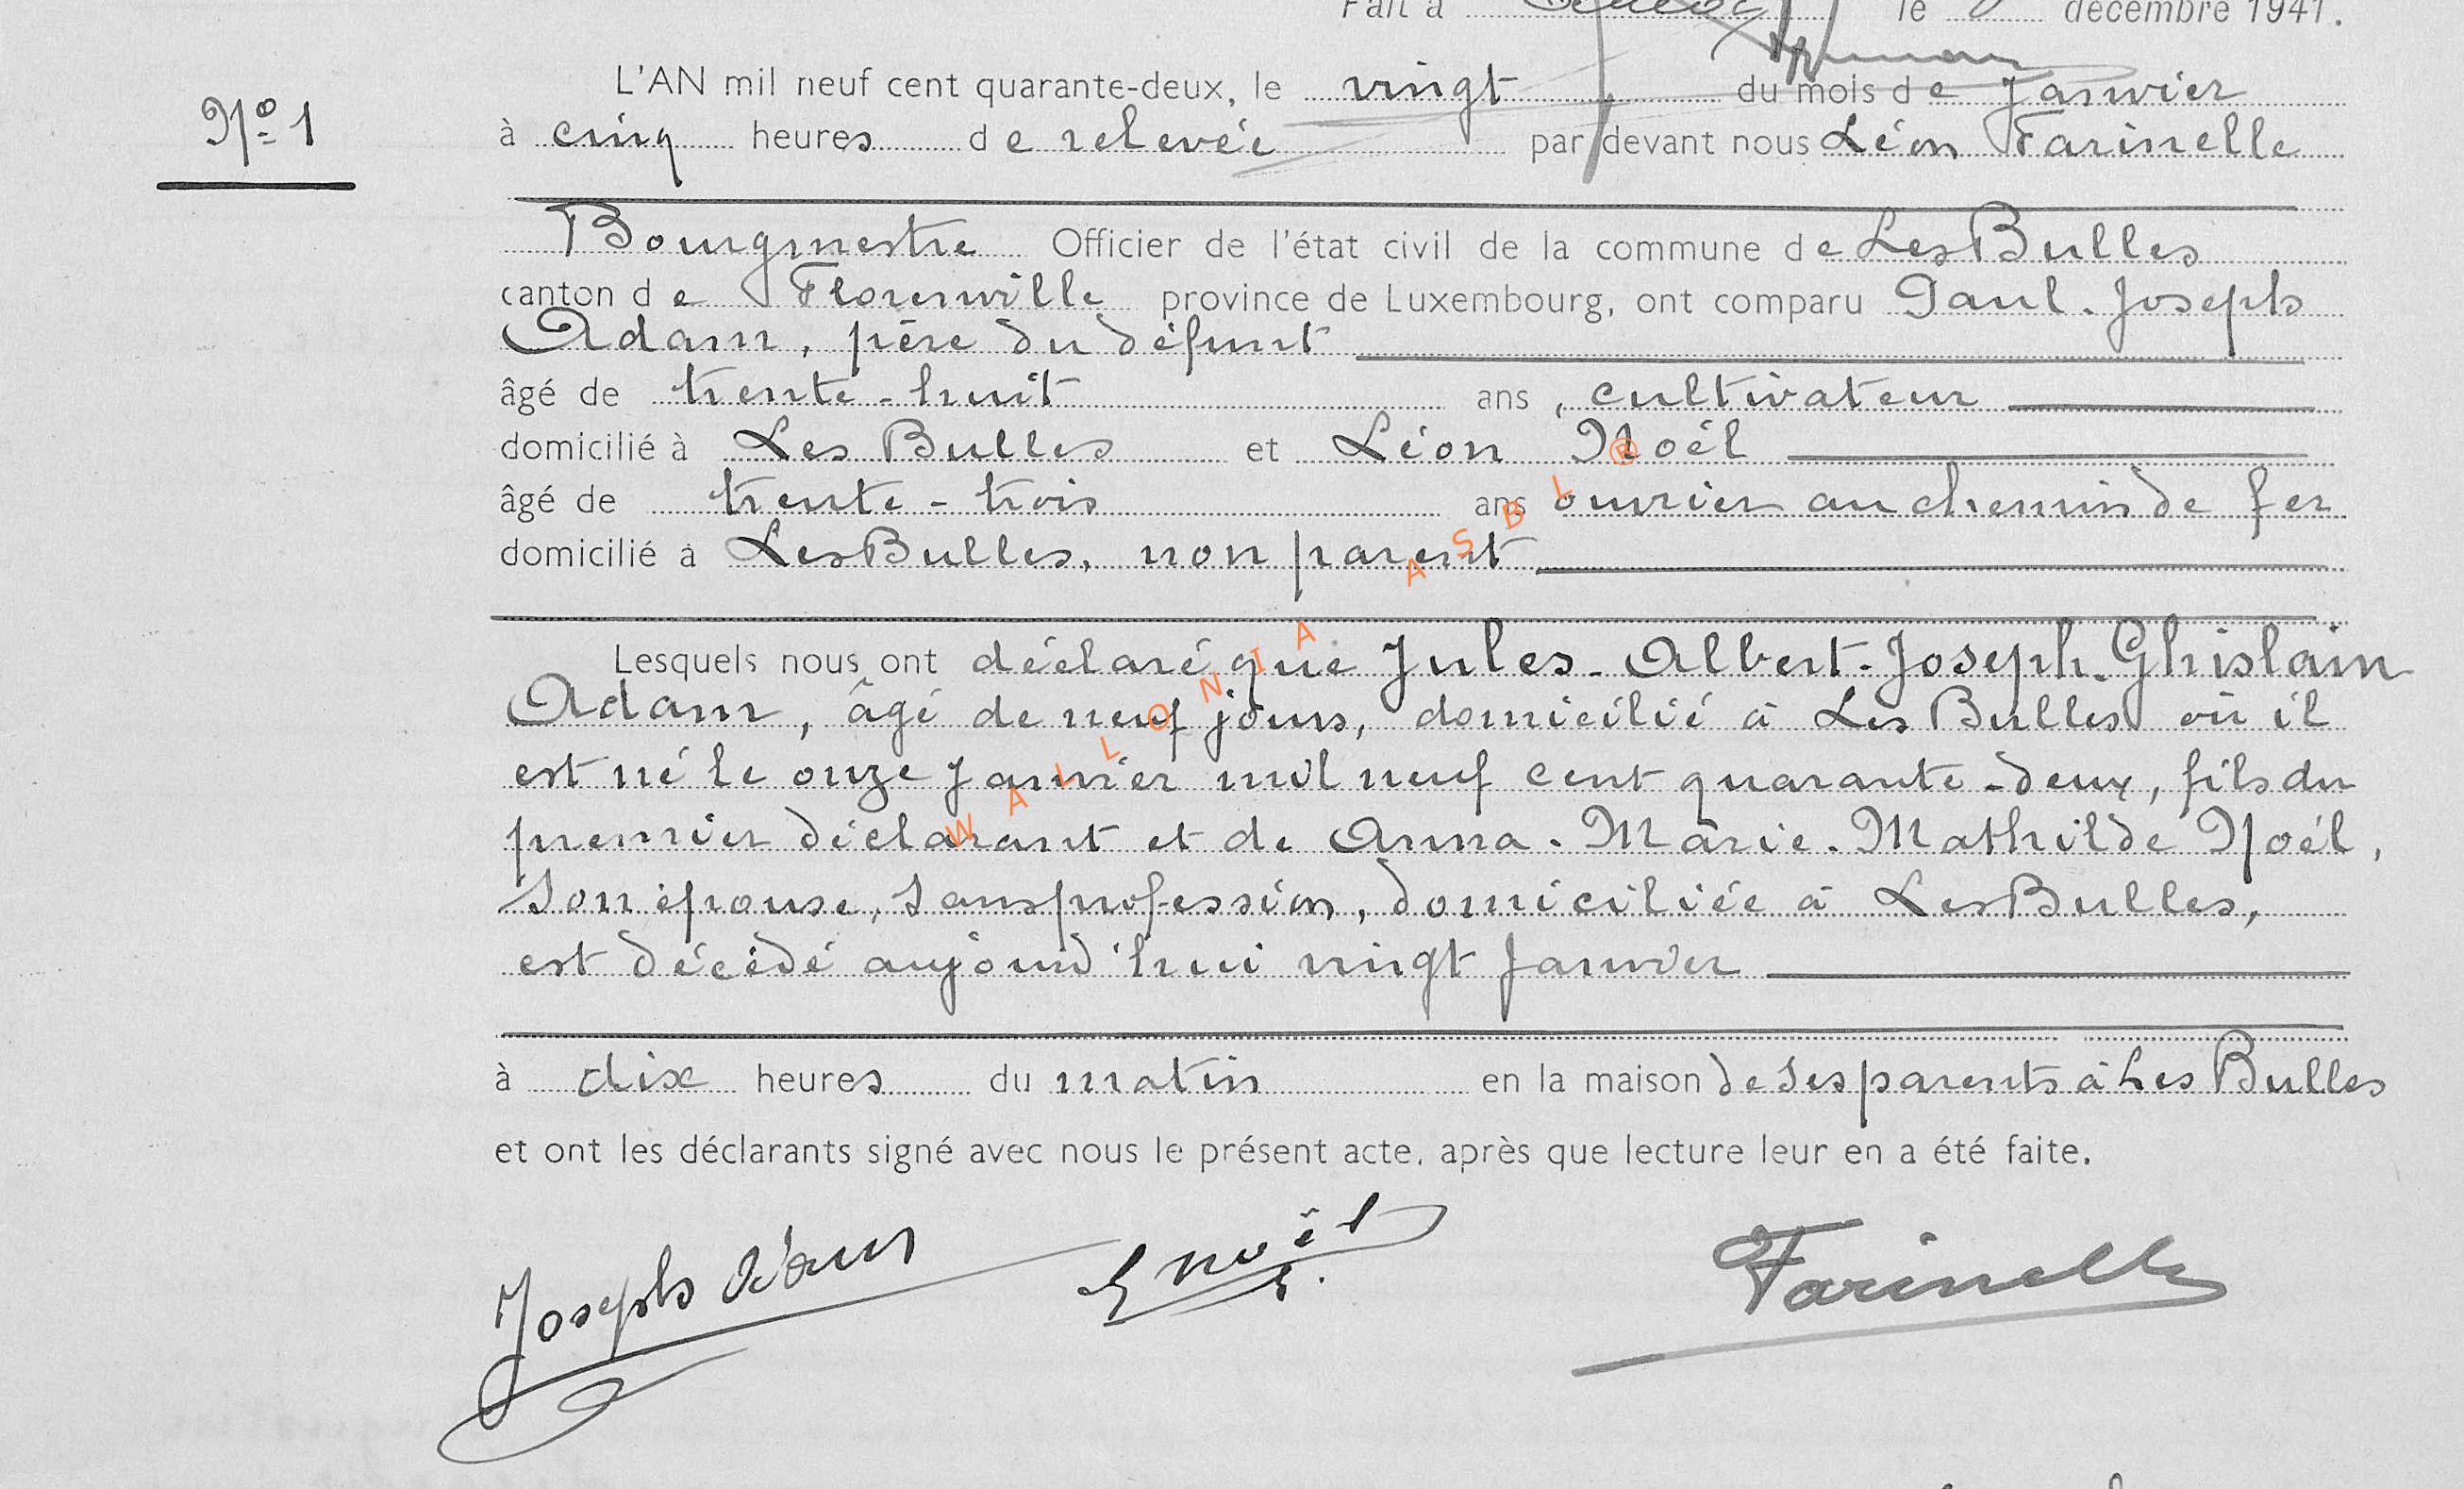 Fait à le décembre 1941.
L'AN mil neuf cent quarante-deux, le vingt du mois de Janvier
N° 1
à cinq heures de relevée par devant nous Léon Farinelle
Bourgmestre Officier de l'état civil de la commune de Les Bulles
canton de Florenville province de Luxembourg, ont comparu Paul-Joseph
Adam, père du défunt
âgé de trente-huit ans, cultivateur
domicilié à Les Bulles et Léon Noël
âgé de trente-trois ans ouvrier au chemin de fer
domicilié à Les Bulles, non parent
Lesquels nous ont déclaré que Jules-Albert-Joseph-Ghislain
Adam, âgé de neuf jours, domicilié à Les Bulles où il
est né le onze Janvier mil neuf cent quarante-deux, fils du
premier déclarant et de Anna-Marie-Mathilde Noél,
son épouse, sans profession, domiciliée à Les Bulles,
est décédé aujourd'hui vingt Janvier
à dix heures du matin en la maison de ses parents à Les Bulles
et ont les déclarants signé avec nous le présent acte, après que lecture leur en a été faite.
Joseph Adam L Noël Farinelle
WALLONIA ASBL ®